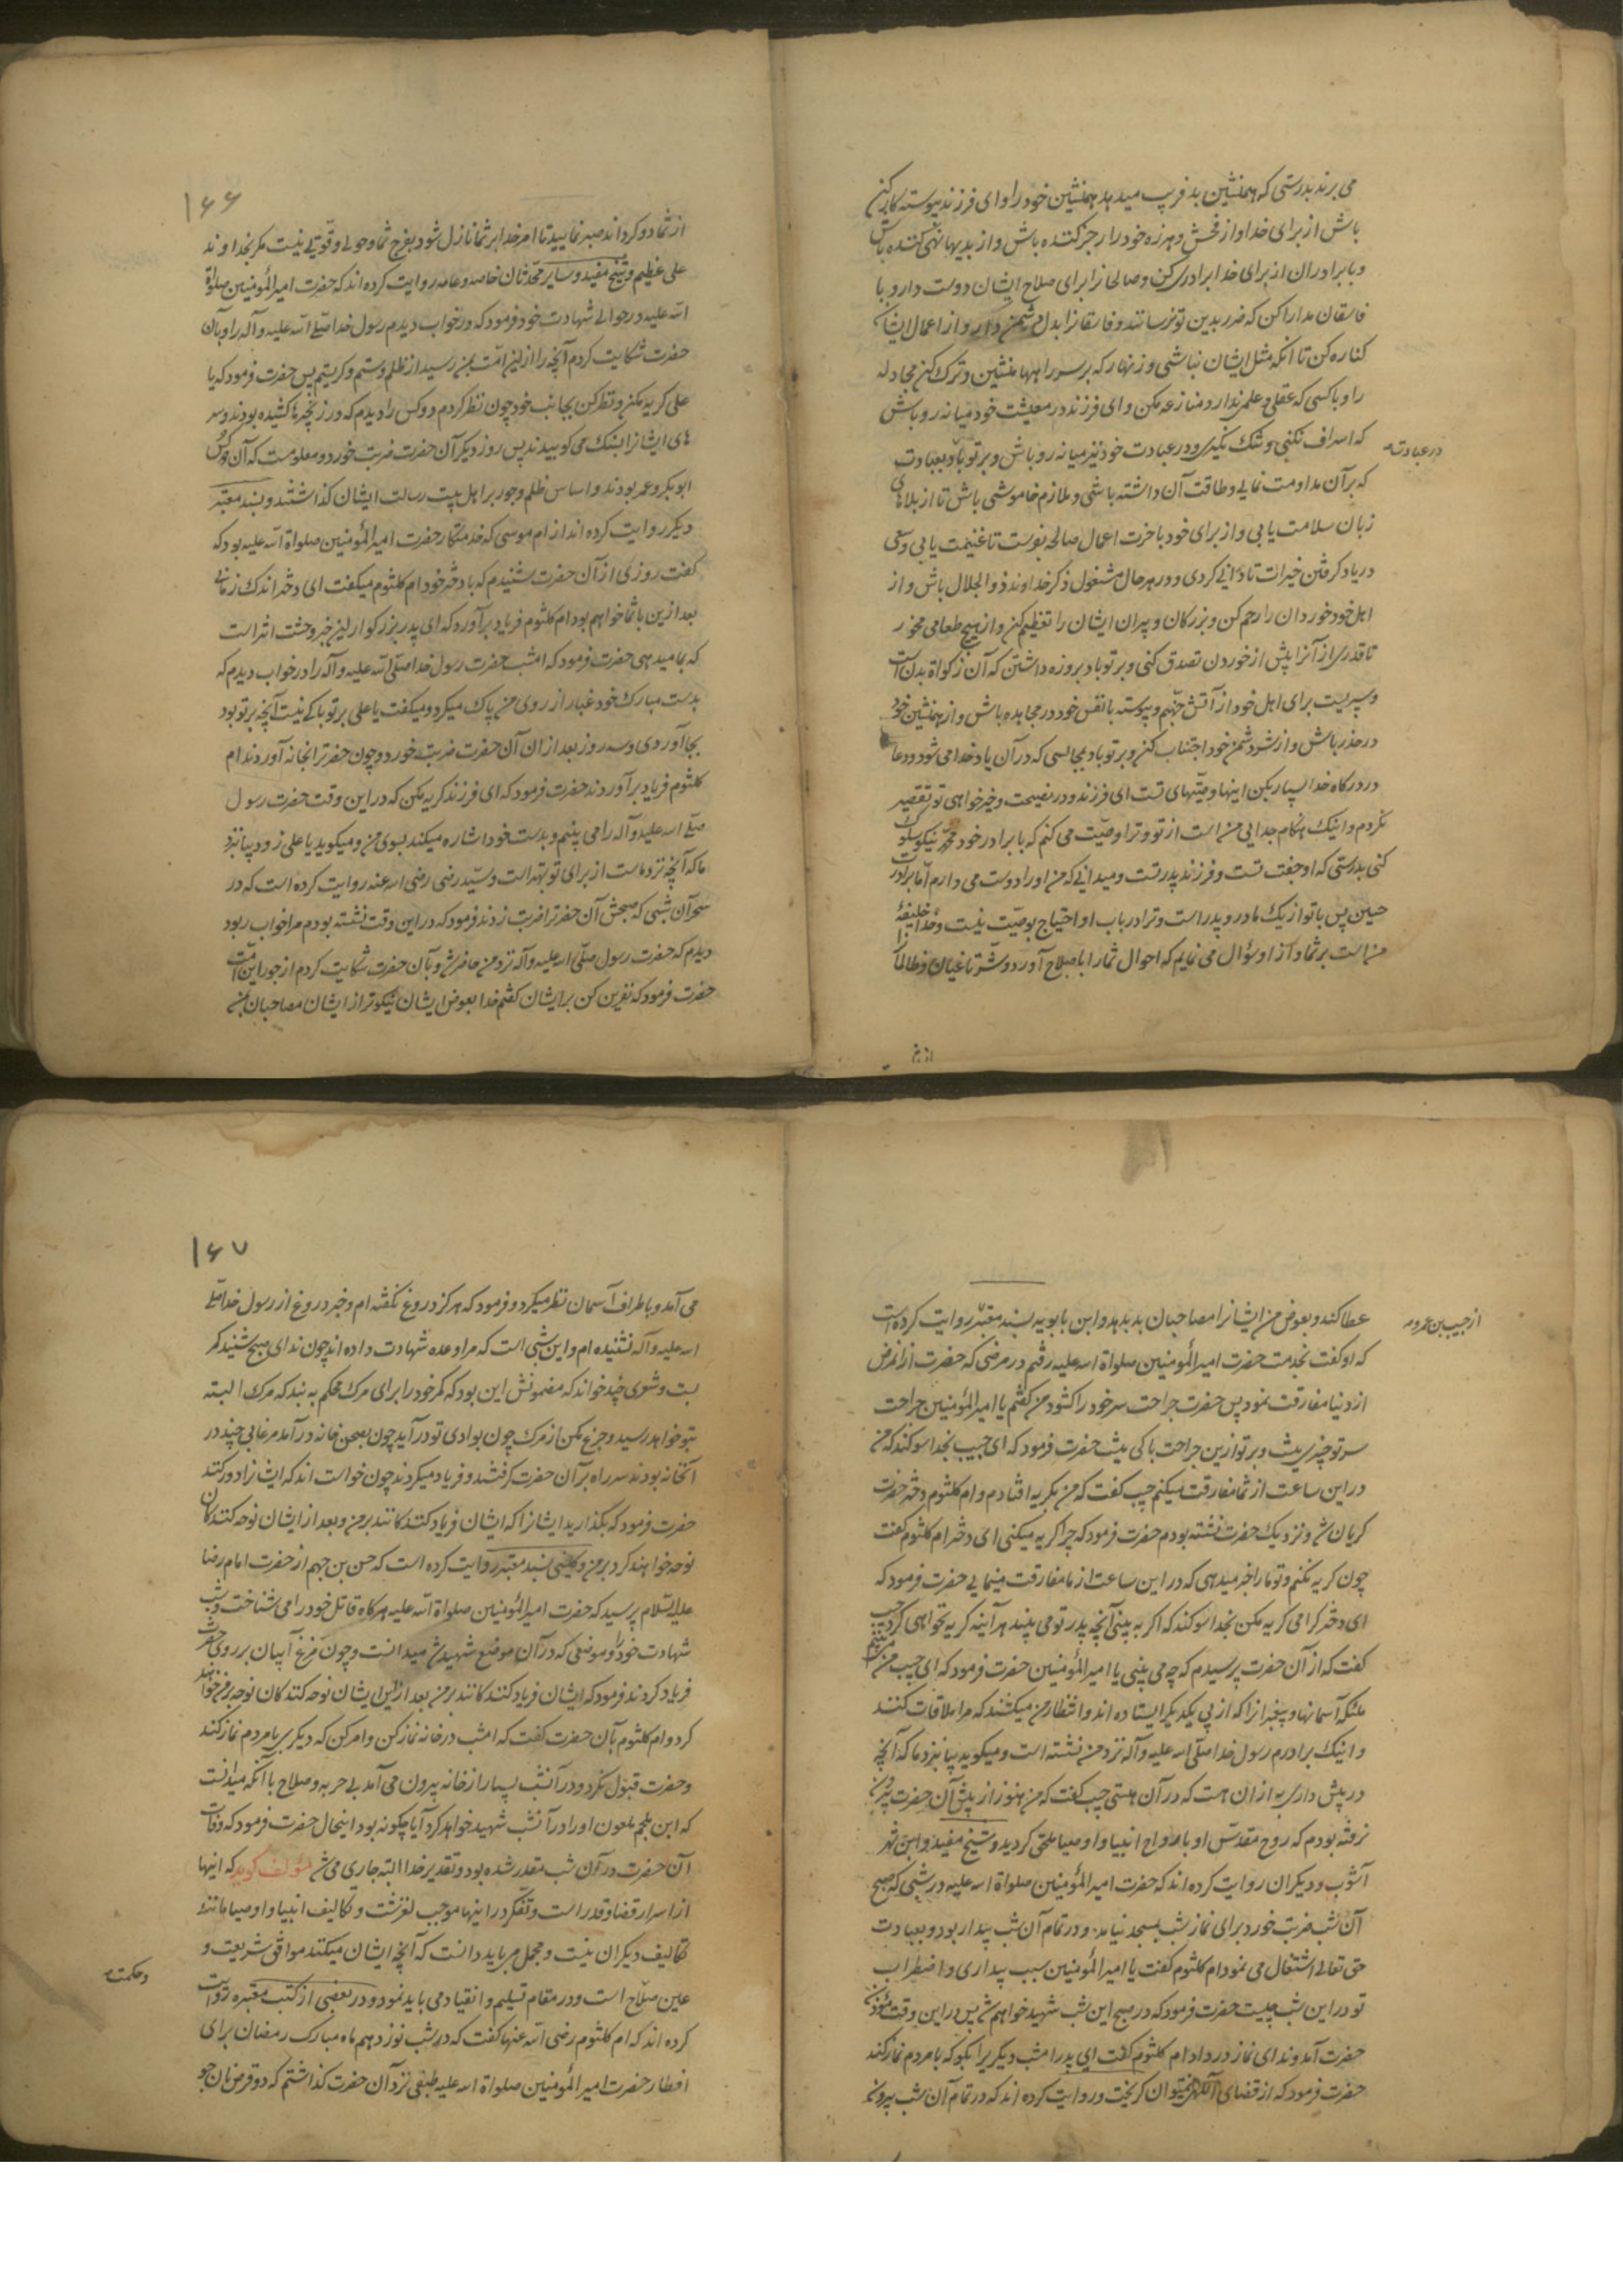 می برند بدرستی که همنشین بد فریب میدهد همنشین خود را و ای فرزند پیوسته کار کن
باش از برای خدا و از فحش و هرزه خود را زجر کننده باش و از بدیها نهی کننده باش
و با برادران از برای خدا برادری کن و صالحانرا برای صلاح ایشان دوست دار و با
فاسقان مدارا کن که ضرر بدین تو نرسانند و فاسقانرا بدل دشمن دار و از اعمال ایشان
کناره کن تا آنکه مثل ایشان نباشی و زنهار که بر سر راهها منشین و ترک کن مجادله
را و با کسی که عقلی و علمی ندارد منازعه مکن و ای فرزند در معیشت خود میانه رو باش
که اسراف نکنی و تنک نگیری و در عبادت خود نیز میانه رو باش و بر تو باد بعبادت
در عبادت
که بر آن مداومت نمایی و طاقت آن داشته باشی و ملازم خاموشی باش تا از بلاهای
زبان سلامت یابی و از برای خود باخرت اعمال صالحه بفرست تا غنیمت یابی و سعی
در یاد گرفتن خیرات تا دانی کردی و در هر حال مشغول ذکر خداوند ذو الجلال باش و از
اهل خود خوردان را رحم کن و بزرکان و پیران ایشان را تعظیم کن و از هیچ طعامی مخور
تا قدری از آنرا پیش از خوردن تصدق کنی و بر تو باد بروزه داشتن که آن زکواة بدن است
و سپریست برای اهل خود از آتش جهنم و پیوسته با نفس خود در مجاهده باش و از همنشین خود
در حذر باش و از شر دشمن خود اجتناب کن و بر تو باد بمجالسی که در آن یاد خدا می شود و دعا
در درکاه خدا بسیار بکن اینها وصیتهای تست ای فرزند و در نصیحت و خیرخواهی تو تقصیر
نکردم و اینک هنکام جدایی من است از تو و ترا وصیت می کنم که با برادر خود محمد نیکو سلوک
کنی بدرستی که او جفت تست و فرزند پدر تست و میدانی که من او را دوست می دارم اما برادرت
حسین پس با تو از یک مادر و پدر است و ترا در باب او احتیاج بوصیت نیست و خدا خلیفهٔ
من است بر شما و از او سؤال می نمایم که احوال شما را باصلاح آورد و شر طاغیان و ظالمانرا
از شما
۱۶۶
از شما دور کرداند صبر نمایید تا امر خدا بر شما نازل شود بفرج شما و حولی و قوتی نیست مکر بخداوند
علی عظیم و شیخ مفید و سایر محدثان خاصه و عامه روایت کرده اند که حضرت امیرالمؤمنین صلواة
الله علیه در حوالی شهادت خود فرمود که در خواب دیدم رسول خدا صلی الله علیه و آله را و بآن
حضرت شکایت کردم آنچه را از این امت بمن رسید از ظلم و ستم و کریستم پس حضرت فرمود که یا
علی کریه مکن و نظر کن بجانب خود چون نظر کردم دو کس را دیدم که در زنجیرها کشیده بودند و سر
های ایشانرا بسنک می کوبیدند پس روز دیکر آن حضرت ضربت خورد و معلومست که آن دو کس
ابوبکر و عمر بودند و اساس ظلم و جور بر اهل بیت رسالت ایشان کذاشتند و بسند معتبر
دیکر روایت کرده اند از ام موسی که خدمتکار حضرت امیرالمؤمنین صلواة الله علیه بود که
کفت روزی از آن حضرت شنیدم که با دختر خود ام کلثوم میکفت ای دختر اندک زمانی
بعد ازین با شما خواهم بود ام کلثوم فریاد برآورد که ای پدر بزرکوار این خبر وحشت اثر است
که بما میدهی حضرت فرمود که امشب حضرت رسول خدا صلی الله علیه و آله را در خواب دیدم که
بدست مبارک خود غبار از روی من پاک میکرد و میکفت یا علی بر تو باکی نیست آنچه بر تو بود
بجا آوردی و سه روز بعد از آن آن حضرت ضربت خورد و چون حضرترا بخانه آوردند ام
کلثوم فریاد برآوردند حضرت فرمود که ای فرزند کریه مکن که در این وقت حضرت رسول
صلی الله علیه و آله را می بینم و بدست خود اشاره میکند بسوی من و میکوید یا علی زود بیا بنزد
ما که آنچه نزد ماست از برای تو بهتر است و سید رضی رضی الله عنه روایت کرده است که در
سحر آن شبی که صبحش آن حضرترا ضربت زدند فرمود که در این وقت نشسته بودم مرا خواب ربود
دیدم که حضرت رسول صلی الله علیه و آله نزد من حاضر شد و بآن حضرت شکایت کردم از جور این امت
حضرت فرمود که نفرین کن بر ایشان کفتم خدا بعوض ایشان نیکوتر از ایشان مصاحبان بمن
عطا کند و بعوض من ایشانرا مصاحبان بد بدهد و ابن بابویه بسند معتبر روایت کرده است
از حبیب بن عمرو
که او کفت بخدمت حضرت امیرالمؤمنین صلواة الله علیه رفتم در مرضی که حضرت از آن مرض
از دنیا مفارقت نمود پس حضرت جراحت سر خود را کشود من کفتم یا امیرالمؤمنین جراحت
سر تو چیزی نیست و بر تو ازین جراحت باکی نیست حضرت فرمود که ای حبیب بخدا سوکند که من
در این ساعت از شما مفارقت میکنم حبیب کفت که من بکریه افتادم و ام کلثوم دختر حضرت
کریان شد و نزدیک حضرت نشسته بودم حضرت فرمود که چرا کریه میکنی ای دختر ام کلثوم کفت
چون کریه نکنم و تو ما را خبر میدهی که در این ساعت از ما مفارقت مینمایی حضرت فرمود که
ای دختر کرامی کریه مکن بخدا سوکند که اکر به بینی آنچه پدر تو می بیند هر آینه کریه نخواهی کرد حبیب
کفت که از آن حضرت پرسیدم که چه می بینی یا امیرالمؤمنین حضرت فرمود که ای حبیب من می بینم
ملئکه آسمانها و پیغمبرانرا که از پی یکدیکر ایستاده اند و انتظار من میکشند که مرا ملاقات کنند
و اینک برادرم رسول خدا صلی الله علیه و آله نزد من نشسته است و میکوید بیا بنزد ما که آنچه
در پیش داری به از آن هست که در آن هستی حبیب کفت که من هنوز از پیش آن حضرت بیرون
نرفته بودم که روح مقدس او با ارواح انبیا و اوصیا ملحق کردید و شیخ مفید و ابن شهر
آشوب و دیکران روایت کرده اند که حضرت امیرالمؤمنین صلواة الله علیه در شبی که صبح
آن شب ضربت خورد برای نماز شب بمسجد نیامد و در تمام آن شب بیدار بود و بعبادت
حق تعالی اشتغال می نمود ام کلثوم کفت یا امیرالمؤمنین سبب بیداری و اضطراب
تو در این شب چیست حضرت فرمود که در صبح این شب شهید خواهم شد پس در این وقت مؤذن
حضرت آمد و ندای نماز در داد ام کلثوم کفت ای پدر امشب دیکریرا بکو که با مردم نماز کند
حضرت فرمود که از قضای الهی نمیتوان کریخت و روایت کرده اند که در تمام آن شب بیرون
۱۶۷
می آمد و باطراف آسمان نظر میکرد و فرمود که هرکز دروغ نکفته ام و خبر دروغ از رسول خدا صلی
الله علیه و آله نشنیده ام و این شبی است که مرا وعده شهادت داده اند چون ندای صبح شنید کمر
بست و شعری چند خواند که مضمونش این بود که کمر خود را برای مرک محکم به بند که مرک البته
بتو خواهد رسید و جزع مکن از مرک چون بوادی تو در آید چون بصحن خانه در آمد مرغابی چند در
آنخانه بودند سر راه بر آن حضرت کرفتند و فریاد میکردند چون خواستند که ایشانرا دور کنند
حضرت فرمود که بکذارید ایشانرا که ایشان فریاد کنندکانند بر من و بعد از ایشان نوحه کنندکان
نوحه خواهند کرد بر من و کلینی بسند معتبر روایت کرده است که حسن بن جهم از حضرت امام رضا
علیه السلام پرسید که حضرت امیرالمؤمنین صلواة الله علیه هرکاه قاتل خود را می شناخت و شب
شهادت خود را و موضعی که در آن موضع شهید شد میدانست و چون مرغ آبیان بر روی حضرت
فریاد کردند فرمود که ایشان فریاد کنندکانند بر من بعد از این ایشان نوحه کنندکان نوحه بر من خواهند
کرد و ام کلثوم بآن حضرت کفت که امشب در خانه نماز کن و امر کن که دیکری با مردم نماز کند
و حضرت قبول نکرد و در آنشب بسیار از خانه بیرون می آمد بی حربه و صلاح با آنکه میدانست
که ابن ملجم ملعون او را در آنشب شهید خواهد کرد آیا چکونه بود اینحال حضرت فرمود که وفات
آن حضرت در آن شب مقدر شده بود و تقدیر خدا البته جاری می شد مؤلف کوید که اینها
از اسرار قضا و قدر است و تفکر در اینها موجب لغزشت و تکالیف انبیا و اوصیا مانند
تکالیف دیکران نیست و مجمل می باید دانست که آنچه ایشان میکنند موافق شریعت و
و حکمت
عین صلاح است و در مقام تسلیم و انقیاد می باید نمود و در بعضی از کتب معتبره روایت
کرده اند که ام کلثوم رضی الله عنها کفت که در شب نوزدهم ماه مبارک رمضان برای
افطار حضرت امیرالمؤمنین صلواة الله علیه طبقی نزد آن حضرت کذاشتم که دو قرص نان جو